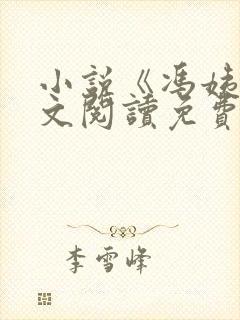 小説《馮姨
文閱讀免費
李雪峰